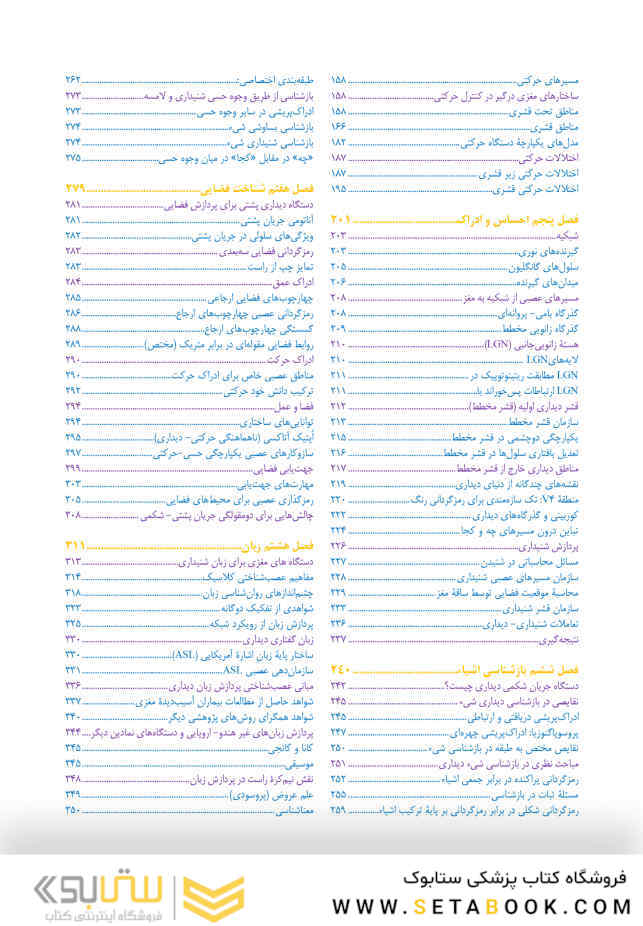 مسیرهای حرکتی ۱۵۸
ساختارهای مغزی درگیر در کنترل حرکتی ۱۵۸
مناطق تحت قشری ۱۵۸
مناطق قشری ۱۶۶
مدل‌های یکپارچهٔ دستگاه حرکتی ۱۸۲
اختلالات حرکتی ۱۸۷
اختلالات حرکتی زیر قشری ۱۸۷
اختلالات حرکتی قشری ۱۹۵
فصل پنجم احساس و ادراک ۲۰۱
شبکیه ۲۰۳
گیرنده‌های نوری ۲۰۳
سلول‌های گانگلیون ۲۰۵
میدان‌های گیرنده ۲۰۶
مسیرهای عصبی از شبکیه به مغز ۲۰۸
گذرگاه بامی- پروانه‌ای ۲۰۸
گذرگاه زانویی مخطط ۲۰۹
هستهٔ زانویی‌جانبی (LGN) ۲۱۰
لایه‌های LGN ۲۱۰
LGN مطابقت رتینوتوپیک در ۲۱۱
LGN ارتباطات پس‌خوراند یا ۲۱۱
قشر دیداری اولیه (قشر مخطط) ۲۱۲
سازمان قشر مخطط ۲۱۳
یکپارچگی دوچشمی در قشر مخطط ۲۱۵
تعدیل بافتاری سلول‌ها در قشر مخطط ۲۱۶
مناطق دیداری خارج از قشر مخطط ۲۱۷
نقشه‌های چندگانه از دنیای دیداری ۲۱۹
منطقهٔ V۴: تک سازه‌مندی برای رمزگردانی رنگ ۲۲۰
کوربینی و گذرگاه‌های دیداری ۲۲۲
تباین درون مسیرهای چه و کجا ۲۲۴
پردازش شنیداری ۲۲۶
مسائل محاسباتی در شنیدن ۲۲۷
سازمان مسیرهای عصبی شنیداری ۲۲۸
محاسبهٔ موقعیت فضایی توسط ساقهٔ مغز ۲۲۹
سازمان قشر شنیداری ۲۳۳
تعاملات شنیداری- دیداری ۲۳۶
نتیجه‌گیری ۲۳۷
فصل ششم بازشناسی اشیاء ۲۴۰
دستگاه جریان شکمی دیداری چیست؟ ۲۴۲
نقایصی در بازشناسی دیداری شیء ۲۴۵
ادراک‌پریشی دریافتی و ارتباطی ۲۴۵
پروسوپاگنوزیا: ادراک‌پریشی چهره‌ای ۲۴۷
نقایص مختص به طبقه در بازشناسی شیء ۲۵۰
مباحث نظری در بازشناسی شیء دیداری ۲۵۱
رمزگردانی پراکنده در برابر جمعی اشیاء ۲۵۲
مسئلهٔ ثبات در بازشناسی ۲۵۵
رمزگردانی شکلی در برابر رمزگردانی بر پایهٔ ترکیب اشیاء ۲۵۹
طبقه‌بندی اختصاصی: ۲۶۲
بازشناسی از طریق وجوه حسی شنیداری و لامسه ۲۷۳
ادراک‌پریشی در سایر وجوه حسی ۲۷۳
بازشناسی بساوشی شیء ۲۷۴
بازشناسی شنیداری شیء ۲۷۴
«چه» در مقابل «کجا» در میان وجوه حسی ۲۷۵
فصل هفتم شناخت فضایی ۲۷۹
دستگاه دیداری پشتی برای پردازش فضایی ۲۸۱
آناتومی جریان پشتی ۲۸۱
ویژگی‌های سلولی در جریان پشتی ۲۸۲
رمزگردانی فضایی سه‌بعدی ۲۸۳
تمایز چپ از راست ۲۸۳
ادراک عمق ۲۸۴
چهارچوب‌های فضایی ارجاعی ۲۸۵
رمزگردانی عصبی چهارچوب‌های ارجاع ۲۸۶
گسستگی چهارچوب‌های ارجاع ۲۸۸
روابط فضایی مقوله‌ای در برابر متریک (مختص) ۲۸۹
ادراک حرکت ۲۹۰
مناطق عصبی خاص برای ادراک حرکت ۲۹۰
ترکیب دانش خود حرکتی ۲۹۲
فضا و عمل ۲۹۴
توانایی‌های ساختاری ۲۹۴
آپتیک آتاکسی (ناهماهنگی حرکتی- دیداری) ۲۹۵
سازوکارهای عصبی یکپارچگی حسی-حرکتی ۲۹۷
جهت‌یابی فضایی ۲۹۹
مهارت‌های جهت‌یابی ۳۰۳
رمزگذاری عصبی برای محیط‌های فضایی ۳۰۵
چالش‌هایی برای دومقولگی جریان پشتی-شکمی ۳۰۸
فصل هشتم زبان ۳۱۱
دستگاه های مغزی برای زبان شنیداری ۳۱۳
مفاهیم عصب‌شناختی کلاسیک ۳۱۴
چشم‌اندازهای روان‌شناسی زبان ۳۱۸
شواهدی از تفکیک دوگانه ۳۲۳
پردازش زبان از رویکرد شبکه ۳۲۵
زبان گفتاری دیداری ۳۳۰
ساختار پایهٔ زبان اشارهٔ آمریکایی (ASL) ۳۳۰
سازمان‌دهی عصبی ASL ۳۳۱
مبانی عصب‌شناختی پردازش زبان دیداری ۳۳۶
شواهد حاصل از مطالعات بیماران آسیب‌دیدهٔ مغزی ۳۳۷
شواهد همگرای روش‌های پژوهشی دیگر ۳۴۰
پردازش زبان‌های غیر هندو- اروپایی و دستگاه‌های نمادین دیگر ۳۴۴
کانا و کانجی ۳۴۵
موسیقی ۳۴۵
نقش نیم‌کرهٔ راست در پردازش زبان ۳۴۸
علم عروض (پروسودی) ۳۴۹
معناشناسی ۳۵۰
فروشگاه کتاب پزشکی ستابوک
WWW.SETABOOK.COM
ستابوک
فروشگاه اینترنتی کتاب